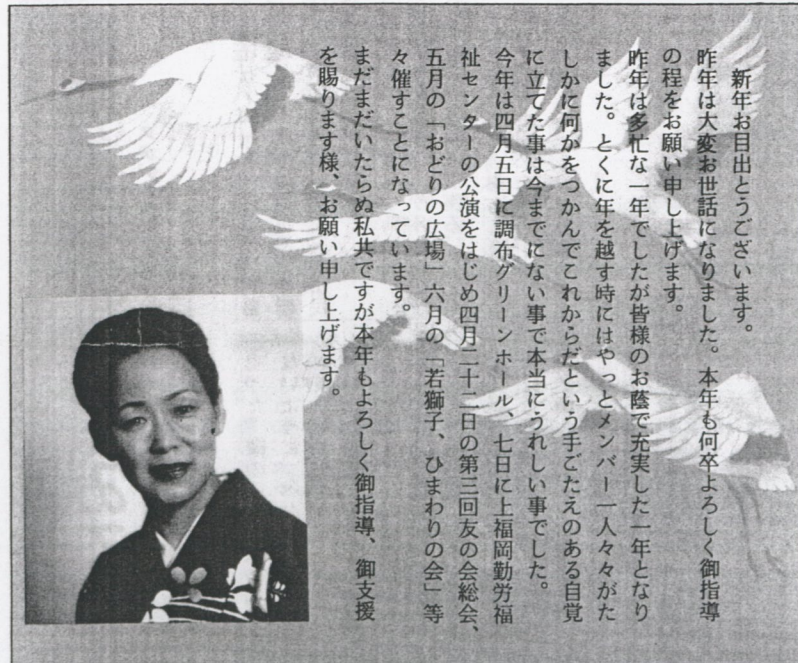 新年お目出とうございます。
昨年は大変お世話になりました。本年も何卒よろしく御指導
の程をお願い申し上げます。
昨年は多忙な一年でしたが皆様のお蔭で充実した一年となり
ました。とくに年を越す時にはやっとメンバー一人々々がた
しかに何かをつかんでこれからだという手ごたえのある自覚
に立てた事は今までにない事で本当にうれしい事でした。
今年は四月五日に調布グリーンホール、七日に上福岡勤労福
祉センターの公演をはじめ四月二十二日の第三回友の会総会、
五月の「おどりの広場」六月の「若獅子、ひまわりの会」等
々催すことになっています。
まだまだいたらぬ私共ですが本年もよろしく御指導、御支援
を賜ります様、お願い申し上げます。